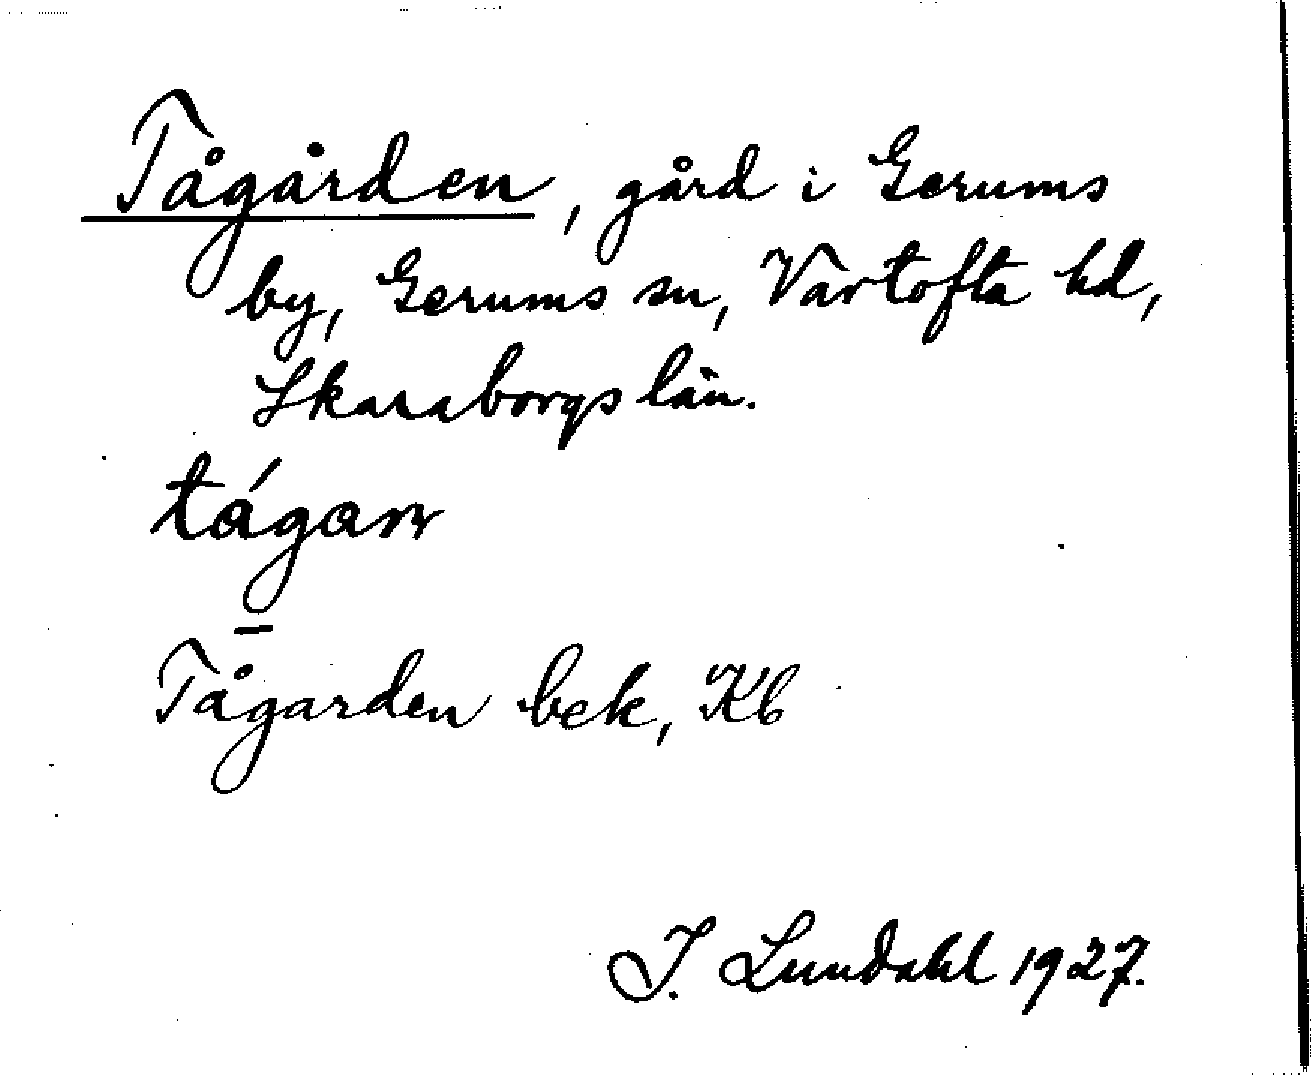 Tågården, gård i Gerums
by, Gerums sn, Vartofta hd,
Skaraborgs län.
Tågarden bek, Kb
I. Lundahl 1927.